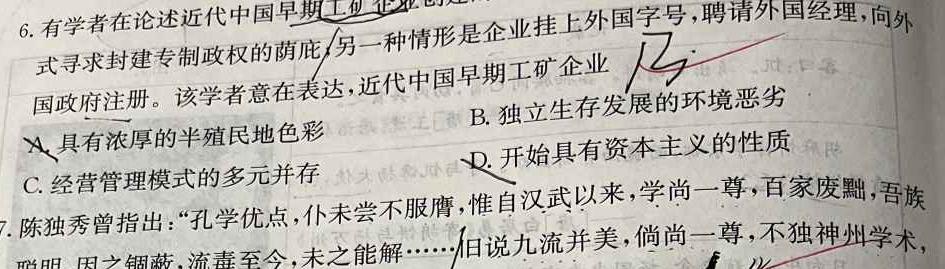 6. 有学者在论述近代中国早期工矿企业
式寻求封建专制政权的荫庇,另一种情形是企业挂上外国字号,聘请外国经理,向外
国政府注册。该学者意在表达,近代中国早期工矿企业
A. 具有浓厚的半殖民地色彩 B. 独立生存发展的环境恶劣
C. 经营管理模式的多元并存 D. 开始具有资本主义的性质
7. 陈独秀曾指出:“孔学优点,仆未尝不服膺,惟自汉武以来,学尚一尊,百家废黜,吾族
聪明,因之锢蔽,流毒至今,未之能解……旧说九流并美,倘尚一尊,不独神州学术,